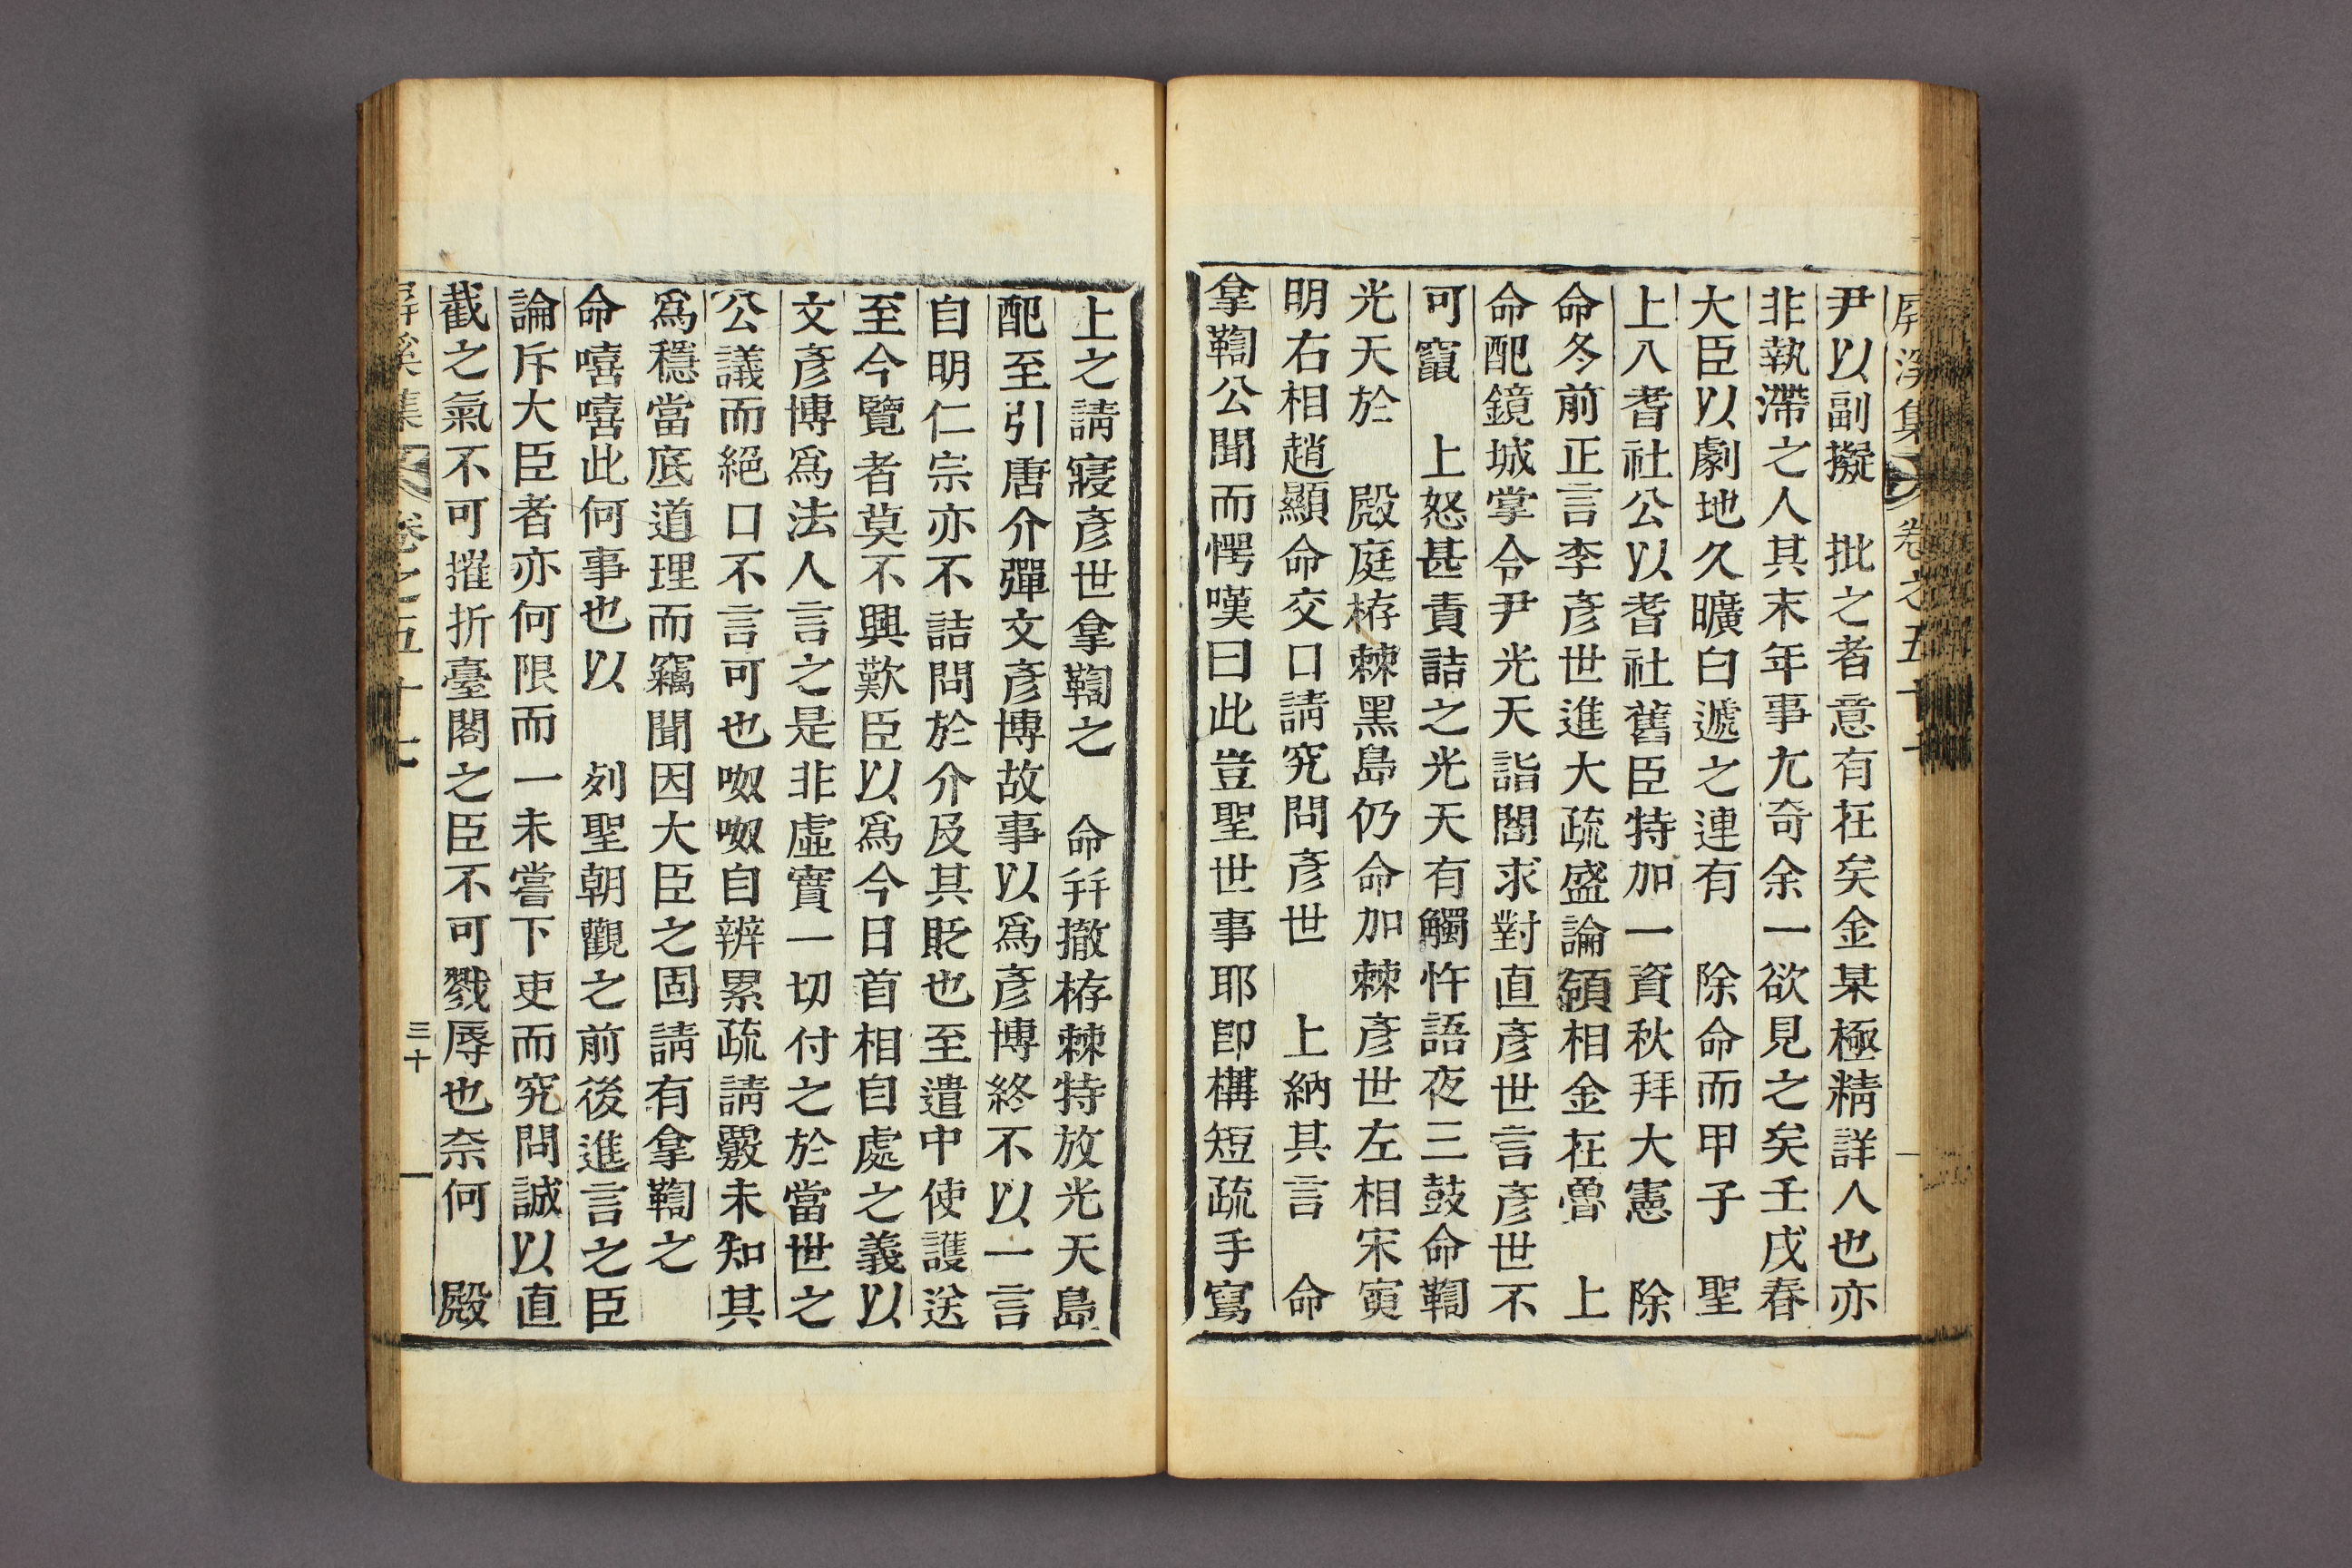 屛溪集 卷之五十七
尹以副擬 批之者意有在矣金某極精詳人也亦
非執滯之人其末年事尤奇余一欲見之矣壬戌春
大臣以劇地久曠白遞之連有 除命而甲子 聖
上入耆社公以耆社舊臣特加一資秋拜大憲 除
命冬前正言李彥世進大疏盛論領相金在魯 上
命配鏡城掌令尹光天詣閤求對直彥世言彥世不
可竄 上怒甚責詰之光天有觸忤語夜三鼓命鞫
光天於 殿庭栫棘黑島仍命加棘彥世左相宋寅
明右相趙顯命交口請究問彥世 上納其言 命
拿鞫公聞而愕嘆曰此豈聖世事耶卽構短疏手寫
上之請寢彥世拿鞫之 命幷撤栫棘特放光天島
配至引唐介彈文彥博故事以爲彥博終不以一言
自明仁宗亦不詰問於介及其貶也至遣中使護送
至今覽者莫不興歎臣以爲今日首相自處之義以
文彥博爲法人言之是非虛實一切付之於當世之
公議而絕口不言可也呶呶自辨累疏請覈未知其
爲穩當底道理而竊聞因大臣之固請有拿鞫之
命嘻嘻此何事也以 列聖朝觀之前後進言之臣
論斥大臣者亦何限而一未嘗下吏而究問誠以直
截之氣不可摧折臺閣之臣不可戮辱也奈何 殿
屛溪集 卷之五十七 三十